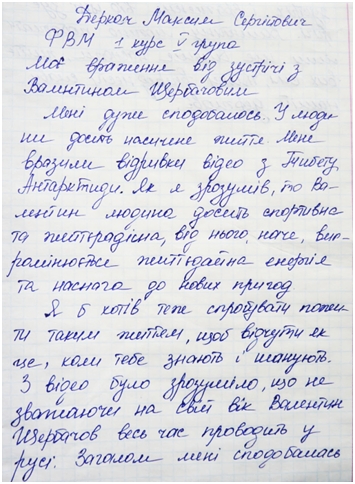 Деркач Максим Сергійович
ФВМ 1 курс V група
Моє враження від зустрічі з
Валентином Щербачовим
Мені дуже сподобалось. У люди
ни досить насичене життя. Мене
вразили відривки відео з Тибету,
Антарктиди. Як я зрозумів, то Ва-
лентин людина досить спортивна
та життєрадісна, від нього, наче, вип-
ромінюється життєдайна енергія
та наснага до нових пригод
Я б хотів теж спробувати пожи-
ти таким життям, щоб відчути як
це, коли тебе знають і шанують.
З відео було зрозуміло, що не
зважаючи на свій вік Валентин
Щербачов весь час проводить у
русі. Загалом мені сподобалась